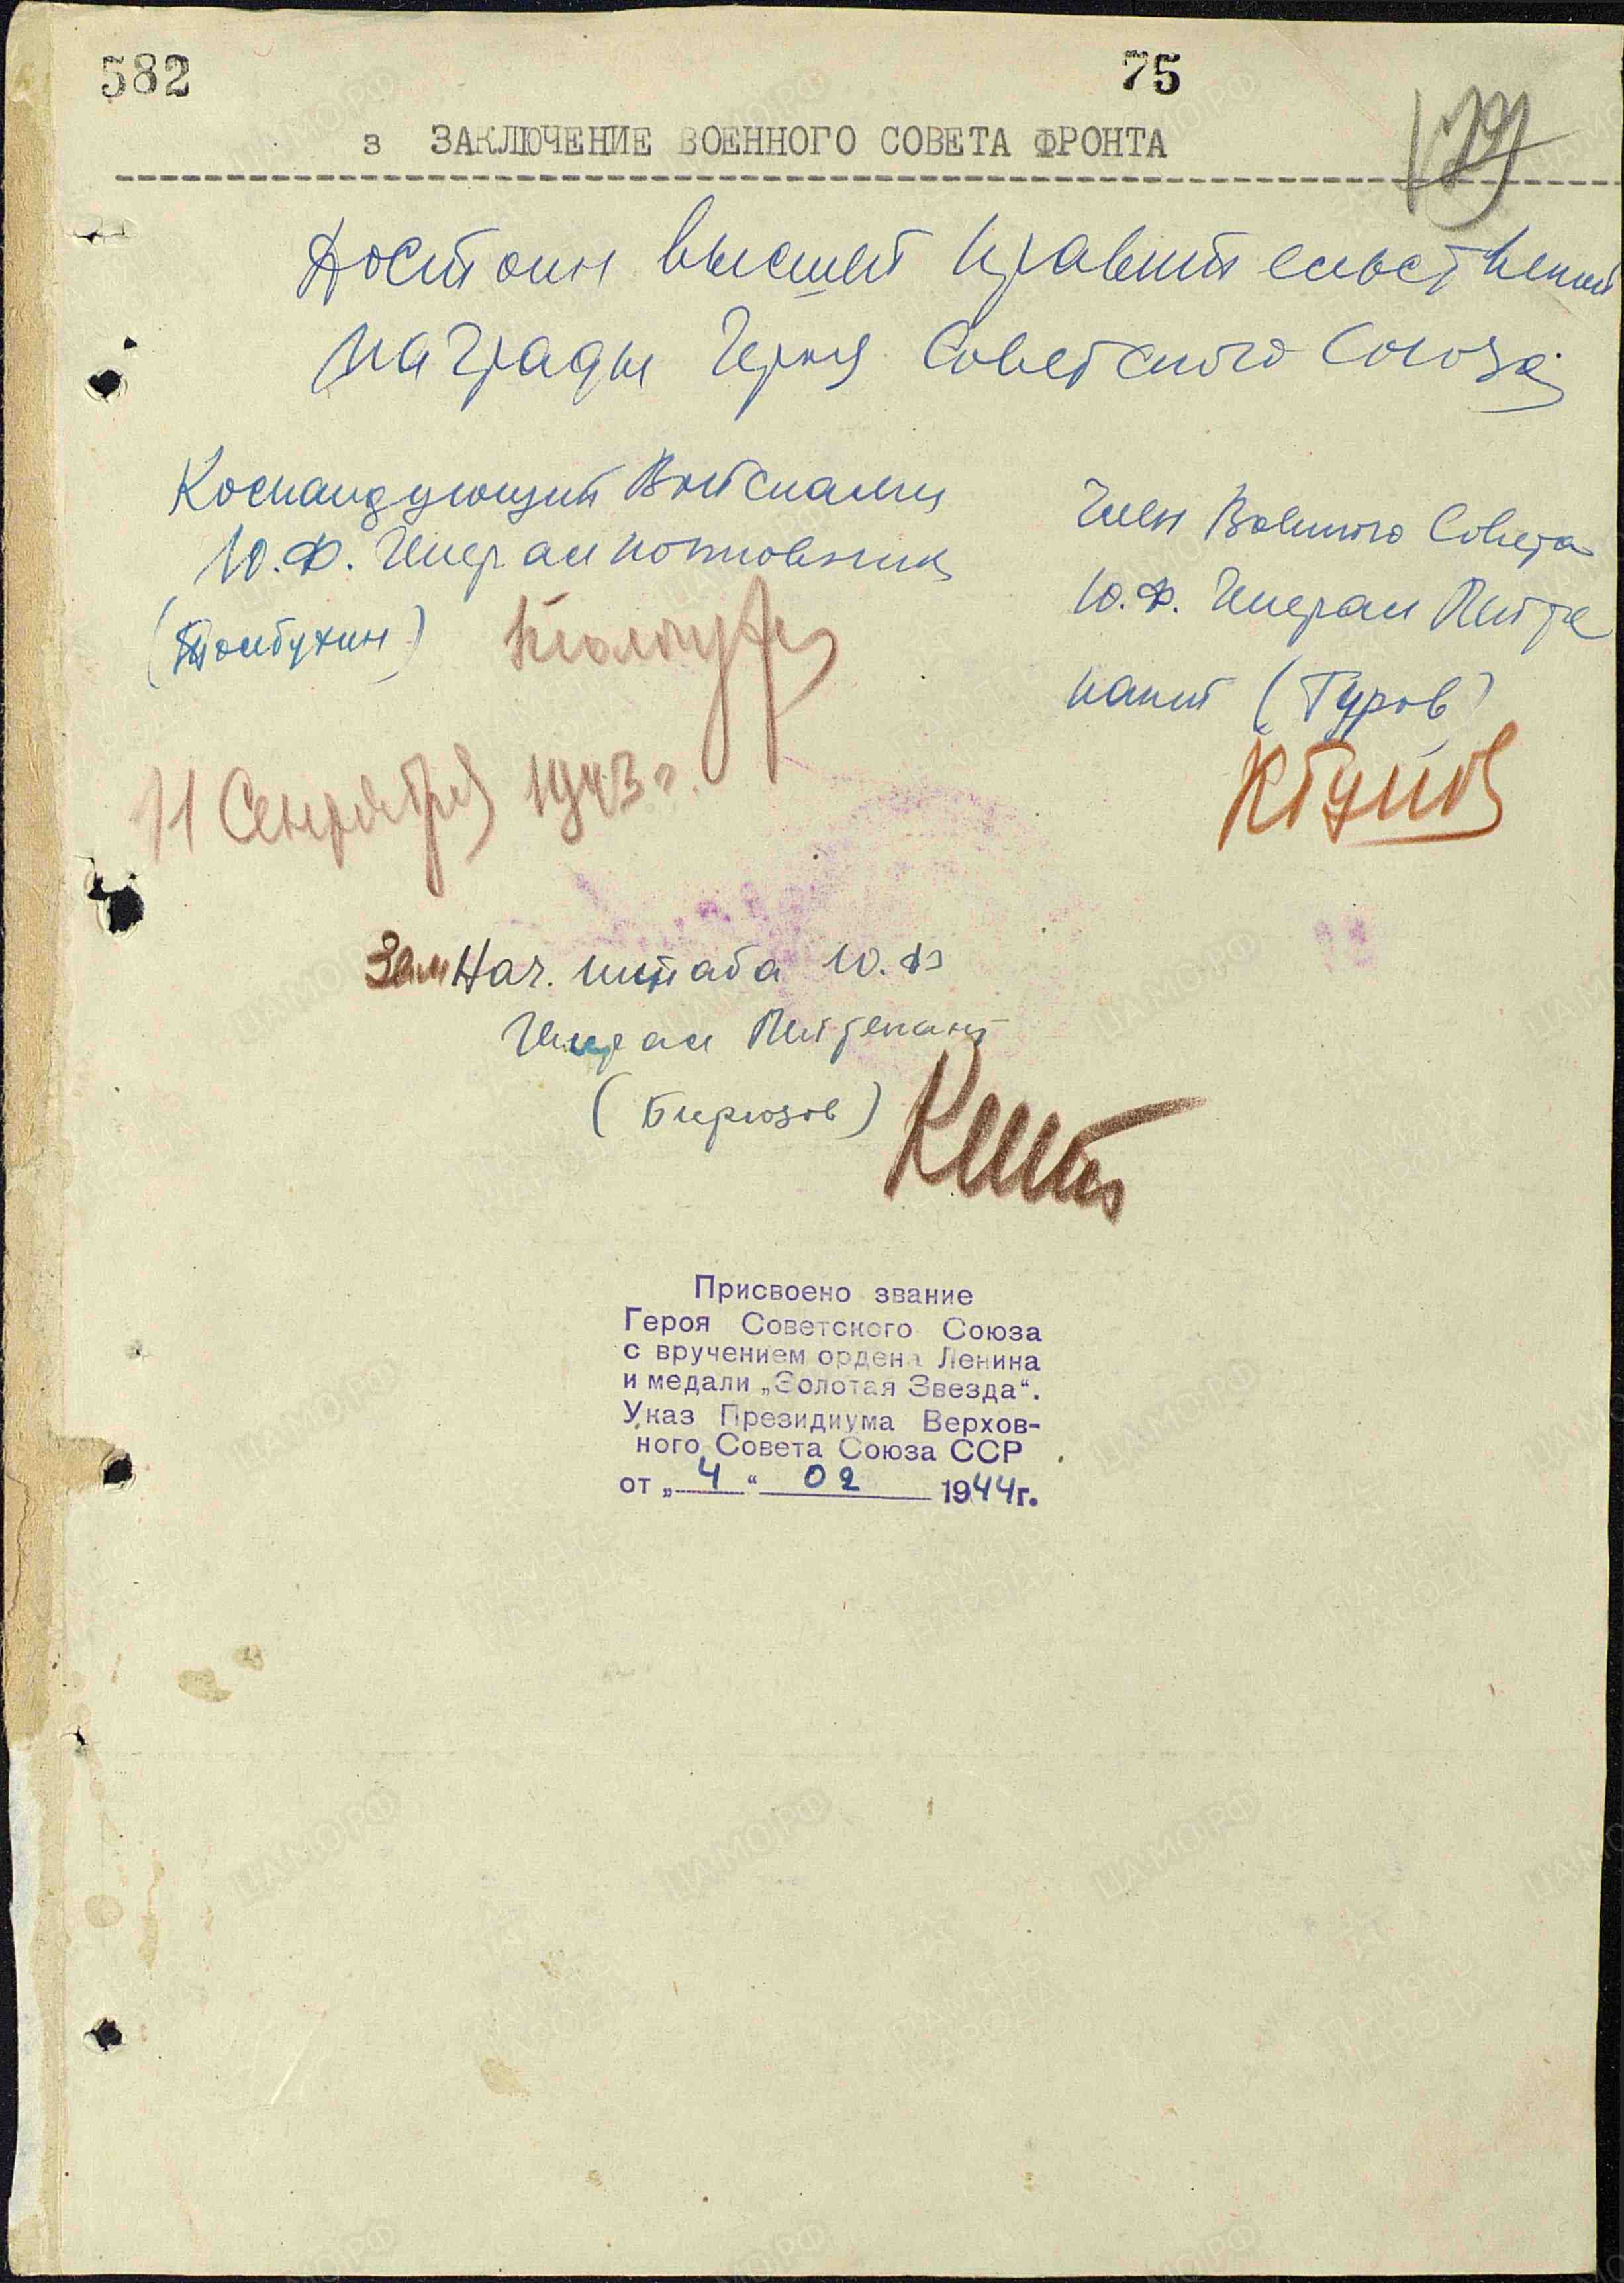 582
75
129
з ЗАКЛЮЧЕНИЕ ВОЕННОГО СОВЕТА ФРОНТА
Достоин высшей правительственной
награды Героя Советского Союза
Командующий Войсками
Ю.Ф. Генерал полковник
(Толбухин)
11 Сентября 1943 г.
Член Военного Совета
Ю.Ф. Генерал Лейте
нант (Гуров)
КГуров
Зам Нач. штаба Ю.Ф
Генерал Лейтенант
(Бирюзов)
Присвоено звание
Героя Советского Союза
с вручением ордена Ленина
и медали „Золотая Звезда“.
Указ Президиума Верхов-
ного Совета Союза ССР
от „4“ 02 1944г.